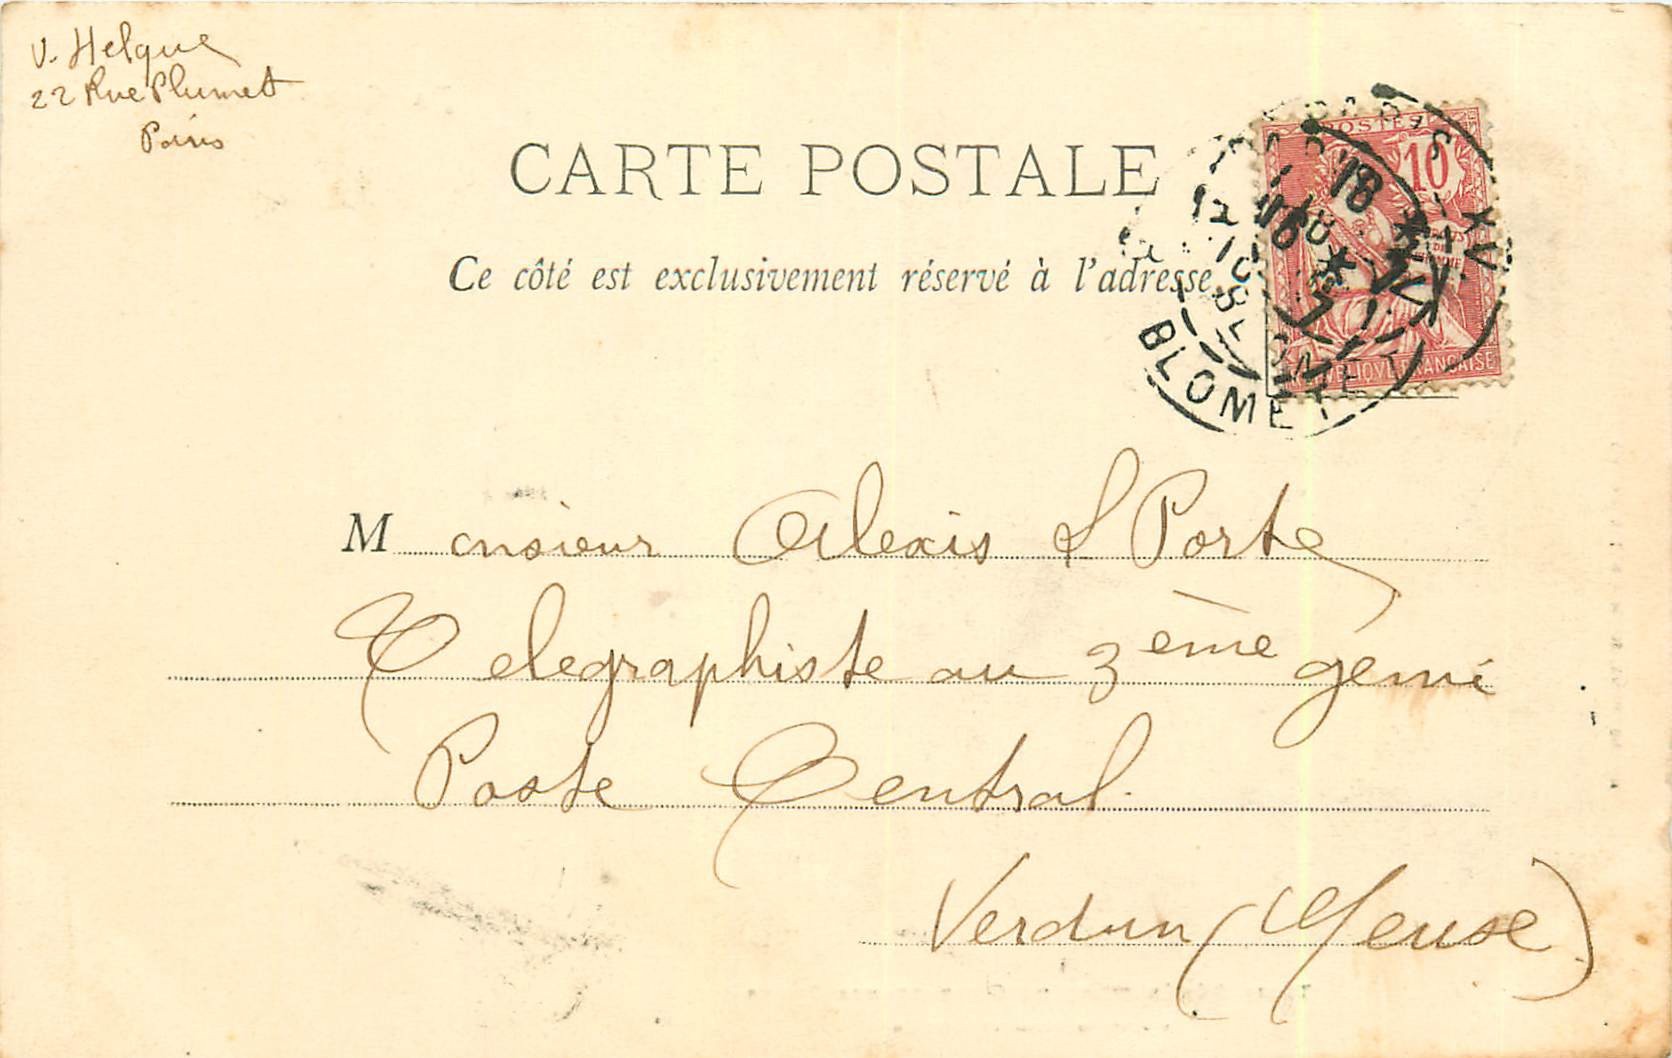 V. Helque
22 Rue Plumet
Paris
CARTE POSTALE
Ce côté est exclusivement réservé à l'adresse
POSTES
10
REPUBLIQUE FRANÇAISE
PARIS XV
BLOMET
Monsieur Alexis Porte
Telegraphiste au 3ème génie
Poste Central
Verdun (Meuse)